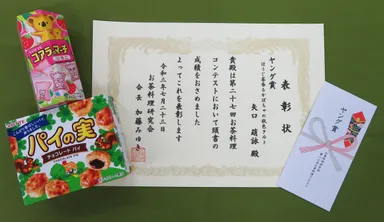 コアラのマーチ
パイの実
チョコレートパイ
表彰状
ヤング賞
ほうじ茶香るかぼちゃの秋色タルト
矢口 萌詠 殿
貴殿は第二十七回お茶料理
コンテストにおいて頭書の
成績をおさめました
よってこれを表彰します
令和三年七月二十三日
お茶料理研究会
会長 加藤みゆき
ヤング賞